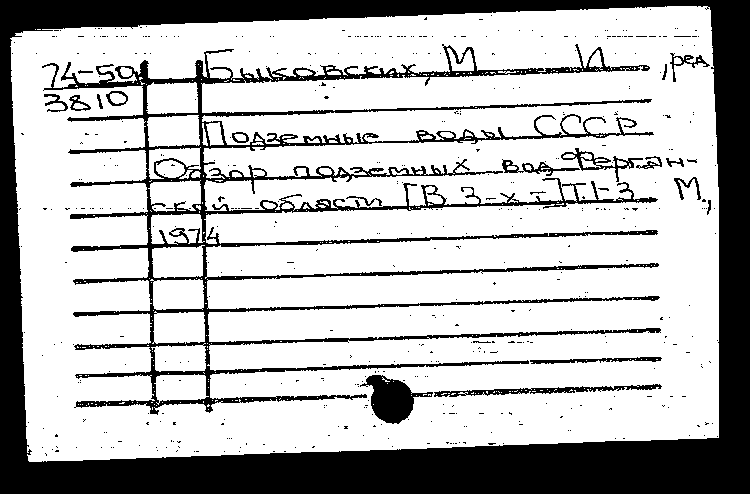 74-50 Быковских, М И , ред.
3810
Подземные воды СССР
Обзор подземных вод Ферган-
ской области [В 3-х т.] Т.1-3 М.,
1974